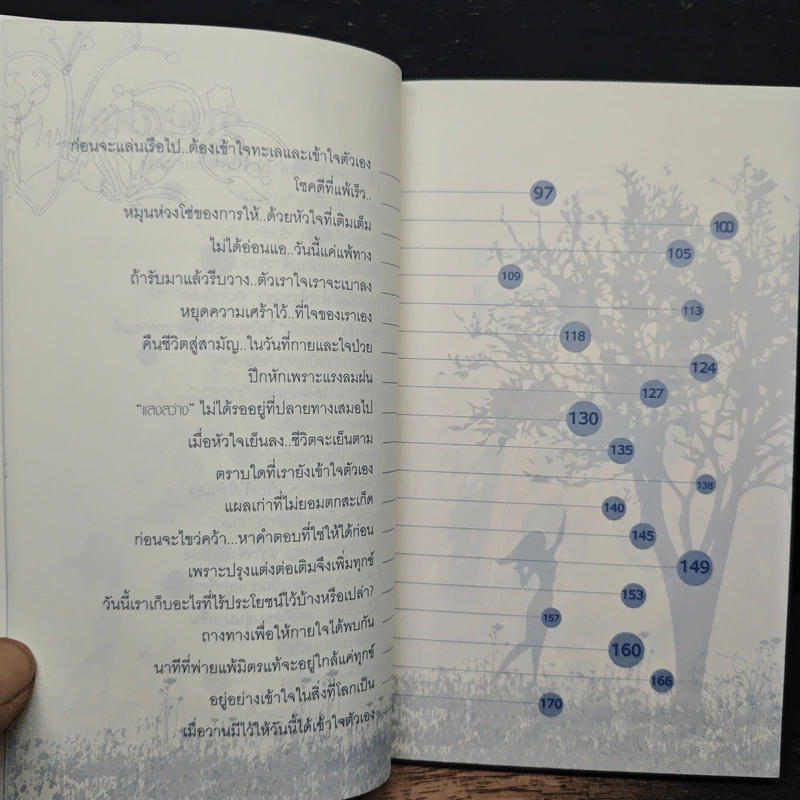 ก่อนจะแล่นเรือไป..ต้องเข้าใจทะเลและเข้าใจตัวเอง 97
โชคดีที่แพ้เร็ว.. 100
หมุนห่วงโซ่ของการให้..ด้วยหัวใจที่เติมเต็ม 105
ไม่ได้อ่อนแอ..วันนี้แค่แพ้ทาง 109
ถ้ารับมาแล้วรีบวาง..ตัวเราใจเราจะเบาลง 113
หยุดความเศร้าไว้..ที่ใจของเราเอง 118
คืนชีวิตสู่สามัญ..ในวันที่กายและใจป่วย 124
ปีกหักเพราะแรงลมฝน 127
"แสงสว่าง" ไม่ได้รออยู่ที่ปลายทางเสมอไป 130
เมื่อหัวใจเย็นลง..ชีวิตจะเย็นตาม 135
ตราบใดที่เรายังเข้าใจตัวเอง 138
แผลเก่าที่ไม่ยอมตกสะเก็ด 140
ก่อนจะไขว่คว้า...หาคำตอบที่ใช่ให้ได้ก่อน 145
เพราะปรุงแต่งต่อเติมจึงเพิ่มทุกข์ 149
วันนี้เราเก็บอะไรที่ไร้ประโยชน์ไว้บ้างหรือเปล่า? 153
ถางทางเพื่อให้กายใจได้พบกัน 157
นาทีที่พ่ายแพ้มิตรแท้จะอยู่ใกล้แค่ทุกข์ 160
อยู่อย่างเข้าใจในสิ่งที่โลกเป็น 166
เมื่อวานมีไว้ให้วันนี้ได้เข้าใจตัวเอง 170